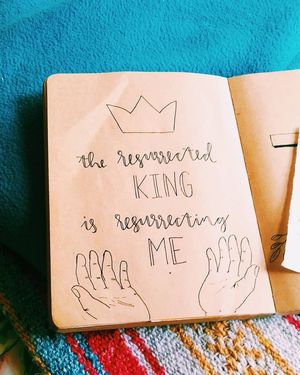 the resurrected
KING
is resurrecting
ME.